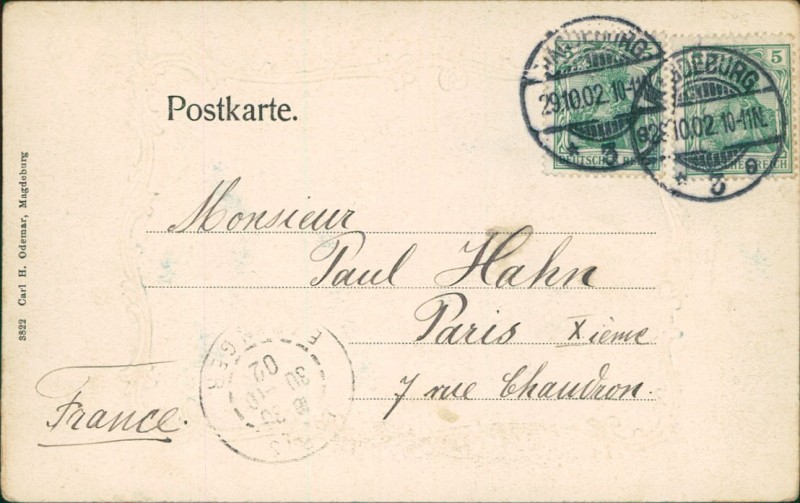 MAGDEBURG
29.10.02. 10-11N.
* 3
MAGDEBURG
29.10.02. 10-11N.
* 3 e
5
DEUTSCHES REICH
DEUTSCHES REICH
Postkarte.
3822 Carl H. Odemar, Magdeburg
Monsieur
Paul Hahn
Paris Xième
7 rue Chaudron.
France.
30
02